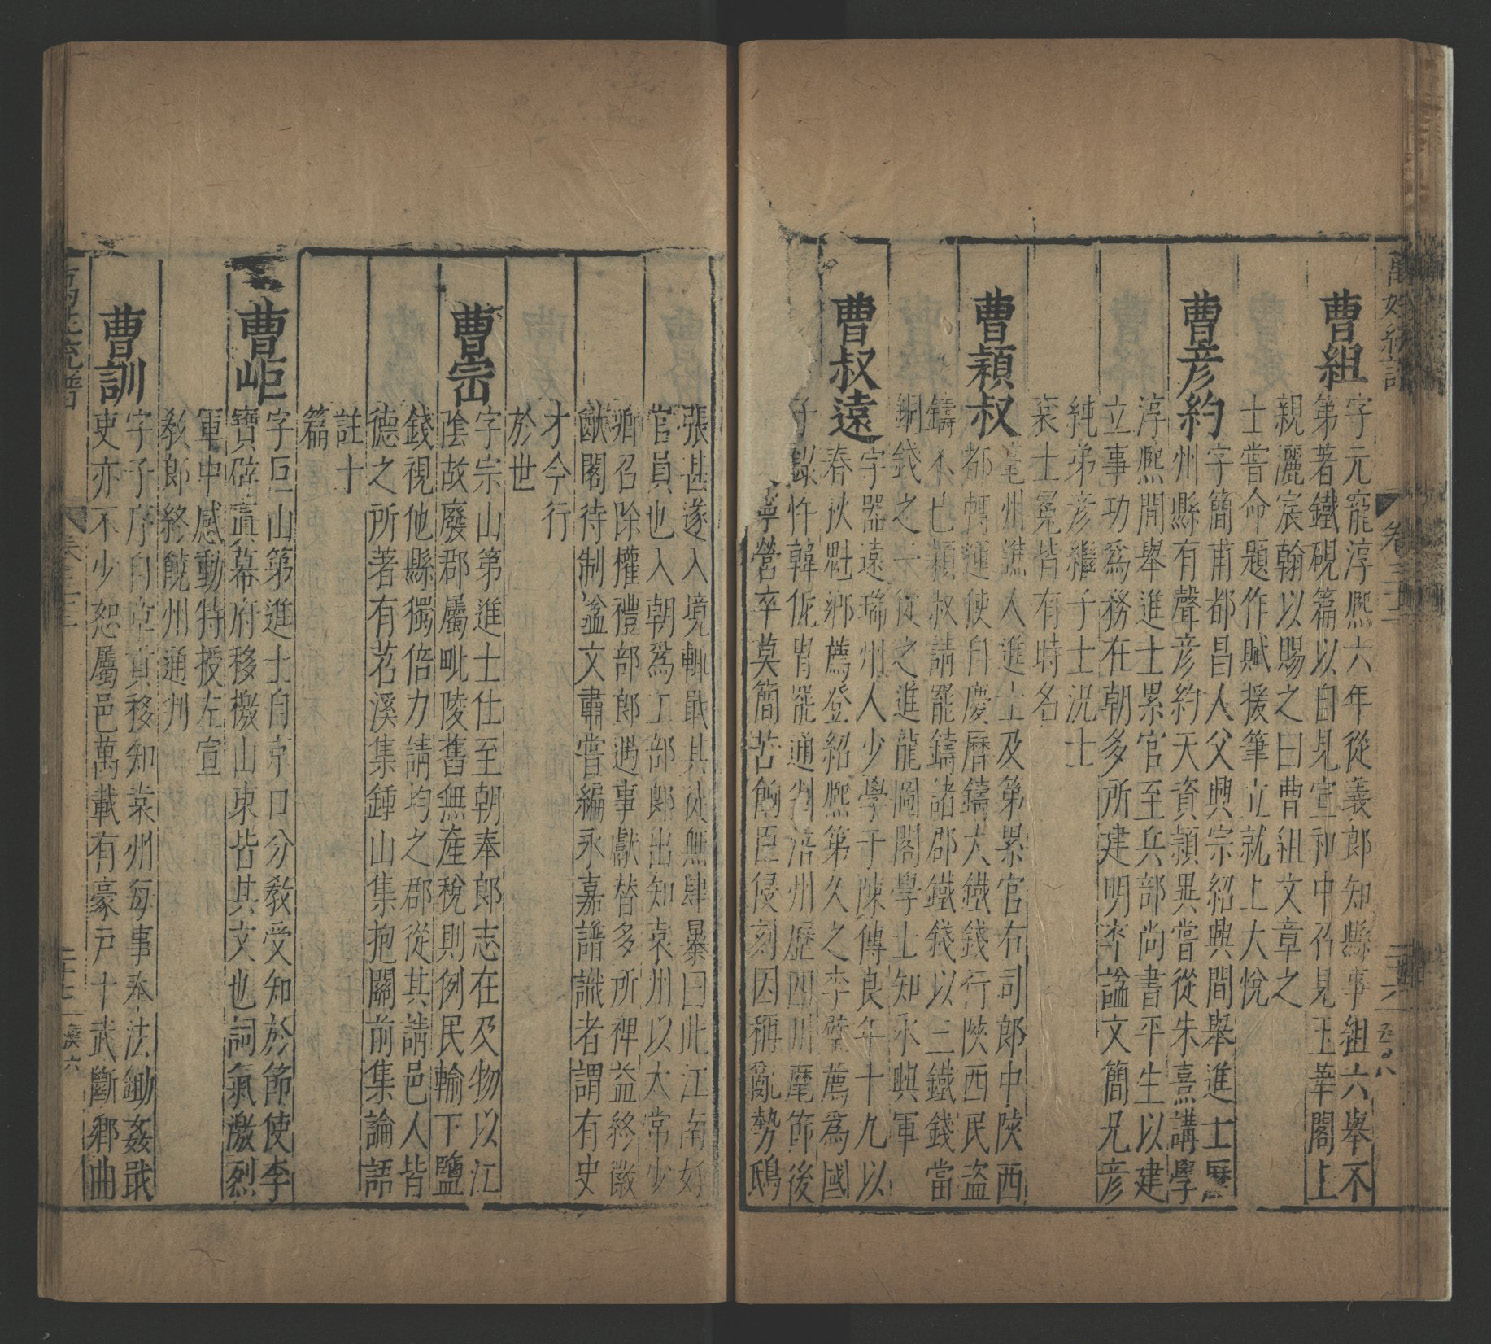 曹組
字元寵淳熙六年從義郎知縣事組六舉不
第著鐵硯篇以自見宣和中召見玉華閣上
親灑宸翰以賜之曰曹組文章之
士嘗命題作賦援筆立就上大悅
曹彦約
字簡甫都昌人父興宗紹興間舉進士歷
州縣有聲彦約天資頴異嘗從朱熹講學
淳熙間舉進士累官至兵部尚書平生以建
立事功爲務在朝多所建明卒謚文簡兄彦
純弟彦繼子士況士
宷士冕皆有時名
曹穎叔
亳州譙人進士及第累官右司郎中陝西
都轉運使自慶曆鑄大鐵錢行陝西民盗
鑄不也穎叔請罷鑄諸郡鐵錢以三鐵錢當
銅錢之一從之進龍圖閣學士知永興軍
曹叔遠
字器遠瑞州人少學于陳傅良年十九以
春秋魁鄉薦登紹熙第久之李壁薦爲國
子 忤韓侂冑罷通判涪州歷四川麾節後
寧營卒莫簡苦飭臣侵刻因稱亂勢鴟
張甚遂入境輒戢其徒無肆暴曰此江南好
官員也入朝爲工部郎出知袁州以太常少
卿召除權禮部郎遇事獻替多所裨益終徽
猷閣待制謚文肅嘗編永嘉譜識者謂有史
才今行
於世
曹崈
字宗山第進士仕至朝奉郎志在及物以江
陰故廢郡屬毗陵舊無産稅則例民輸下鹽
錢視他縣獨倍力請均之郡從其請邑人皆
德之所著有茗溪集鍾山集抱關前集論語
註十
篇
曹岠
字巨山第進士自京口分教受知於節使李
寶辟眞幕府移檄山東皆其文也詞氣激烈
軍中感動特授左宣
教郎終饒州通判
曹訓
字子序自京貳移知萊州每事奉法鋤姦戢
吏亦不少恕屬邑萬載有豪戸十武斷鄉曲
卷之三十三